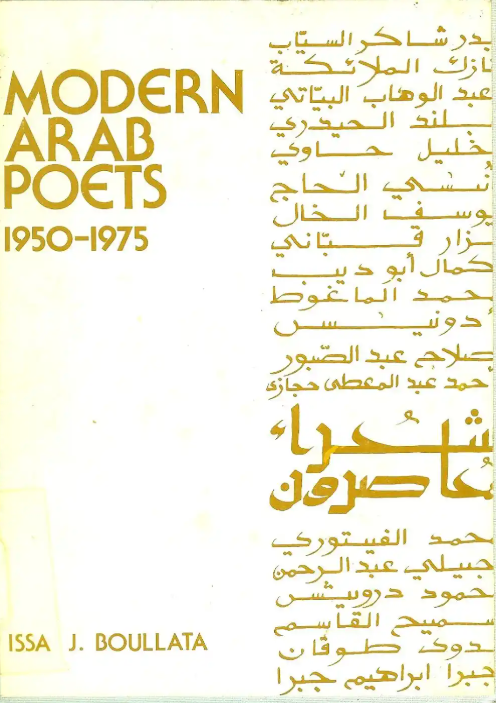 MODERN
ARAB
POETS
1950-1975
ISSA J. BOULLATA
بدر شاكر السيّاب
نازك الملائكة
عبد الوهاب البيّاتي
بلند الحيدري
خليل حاوي
أُنسي الحاج
يوسف الخال
نزار قبّاني
كمال أبو ديب
محمد الماغوط
أدونيس
صلاح عبد الصّبور
احمد عبد المعطى حجازى
شعراء
مُعاصرون
محمد الفيتوري
جيلي عبد الرحمن
محمود درويش
سميح القاسم
فدوى طوقان
جبرا ابراهيم جبرا